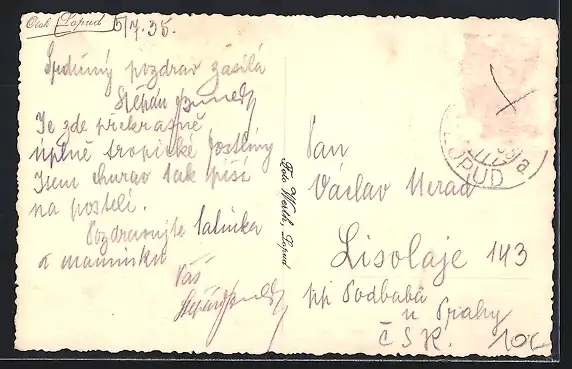 Otok Lopud 5/7.35.
Srdečný pozdrav zasílá
Štěpán
Je zde překrásně
úplně tropické rostliny
Jsem churav tak píši
na posteli.
Pozdravujte tatínka
a maminku
Váš
Štěpán
Foto Werth, Lopud
LOPUD
Pan
Václav Nerad
Lisolaje 143
pp Podbabá
u Prahy
ČSR.